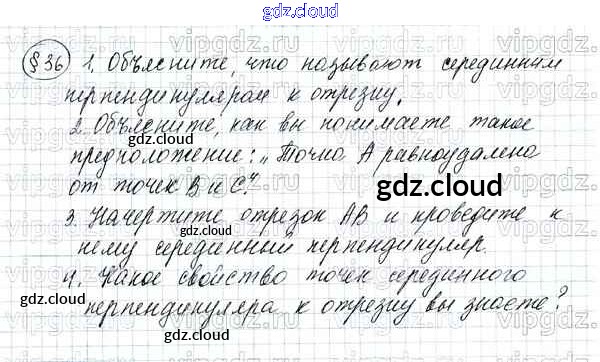 gdz.cloud
§ 36 1. Объясните, что называют серединным
перпендикуляром к отрезку.
2. Объясните, как вы понимаете такое
предположение: „Точка А равноудалена
от точек В и С".
3. Начертите отрезок АВ и проведите к
нему серединный перпендикуляр.
4. Какое свойство точек серединного
перпендикуляра к отрезку вы знаете?
gdz.cloud
gdz.cloud
gdz.cloud
gdz.cloud
gdz.cloud
gdz.cloud